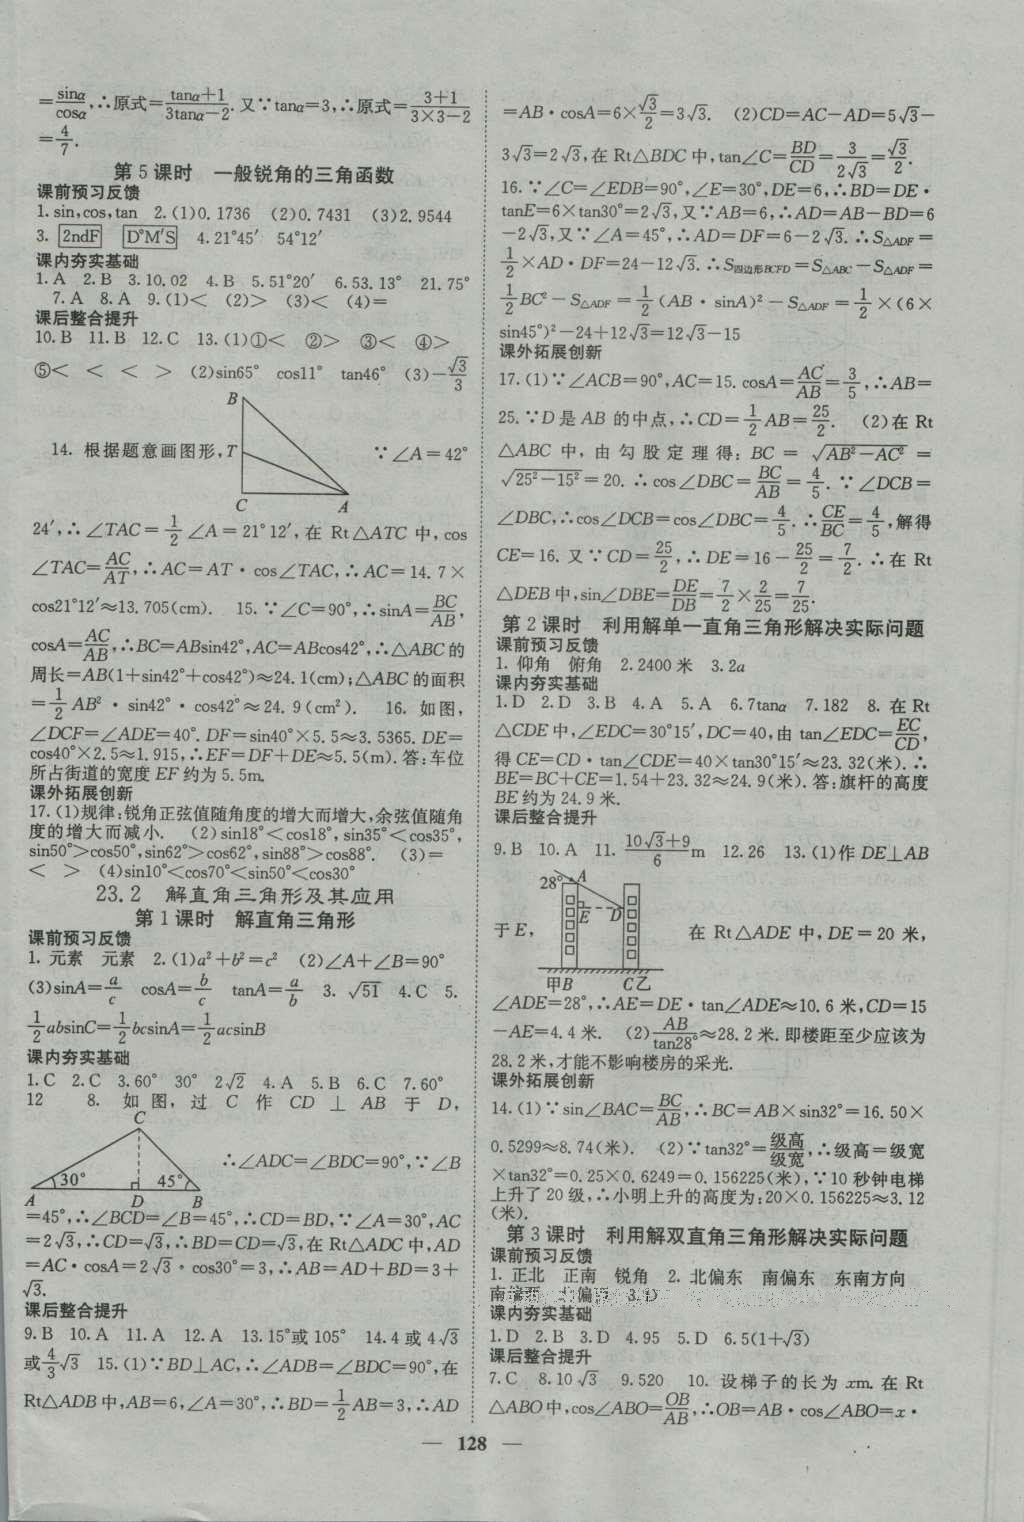 =sinα/cosα,∴原式=(tanα+1)/(3tanα−2).又∵tanα=3,∴原式=(3+1)/(3×3−2)
=4/7.
第5课时 一般锐角的三角函数
课前预习反馈
1.sin,cos,tan 2.(1)0.1736 (2)0.7431 (3)2.9544
3. 2ndF D°M′S 4.21°45′ 54°12′
课内夯实基础
1.A 2.B 3.10.02 4.B 5.51°20′ 6.53.13° 21.75°
7.A 8.A 9.(1)< (2)> (3)< (4)=
课后整合提升
10.B 11.B 12.C 13.(1)①< ②> ③< ④>
⑤< < < > (2)sin65° cos11° tan46° (3)−√3/3
B
14. 根据题意画图形, T ∵∠A=42°
C A
24′,∴∠TAC=1/2∠A=21°12′,在 Rt△ATC 中,cos
∠TAC=AC/AT,∴AC=AT·cos∠TAC,∴AC=14.7×
cos21°12′≈13.705(cm). 15.∵∠C=90°,∴sinA=BC/AB,
cosA=AC/AB,∴BC=ABsin42°,AC=ABcos42°,∴△ABC的
周长=AB(1+sin42°+cos42°)≈24.1(cm);△ABC的面积
=1/2 AB²·sin42°·cos42°≈24.9(cm²). 16. 如图,
∠DCF=∠ADE=40°.DF=sin40°×5.5≈3.5365.DE=
cos40°×2.5≈1.915,∴EF=DF+DE≈5.5(m).答:车位
所占街道的宽度EF约为5.5m.
课外拓展创新
17.(1)规律:锐角正弦值随角度的增大而增大,余弦值随角
度的增大而减小. (2)sin18°<cos18°,sin35°<cos35°,
sin50°>cos50°,sin62°>cos62°,sin88°>cos88°. (3)=
< > (4)sin10°<cos70°<sin50°<cos30°
23.2 解直角三角形及其应用
第1课时 解直角三角形
课前预习反馈
1. 元素 元素 2.(1)a²+b²=c² (2)∠A+∠B=90°
(3)sinA=a/c cosA=b/c tanA=a/b 3. √51 4.C 5.
1/2absinC=1/2bcsinA=1/2acsinB
课内夯实基础
1.C 2.C 3.60° 30° 2√2 4.A 5.B 6.C 7.60°
12 8. 如图,过 C 作 CD ⊥ AB 于 D,
C
30° 45° ∴∠ADC=∠BDC=90°,∵∠B
A D B
=45°,∴∠BCD=∠B=45°,∴CD=BD,∵∠A=30°,AC
=2√3,∴CD=√3,∴BD=CD=√3,在Rt△ADC中,AD
=AC·cosA=2√3·cos30°=3,∴AB=AD+BD=3+
√3.
课后整合提升
9.B 10.A 11.A 12.A 13.15°或105° 14.4或4√3
或4/3√3 15.(1)∵BD⊥AC,∴∠ADB=∠BDC=90°,在
Rt△ADB中,AB=6,∠A=30°,∴BD=1/2AB=3,∴AD
=AB·cosA=6×√3/2=3√3. (2)CD=AC−AD=5√3−
3√3=2√3,在Rt△BDC中,tan∠C=BD/CD=3/(2√3)=√3/2.
16.∵∠C=∠EDB=90°,∠E=30°,DE=6,∴BD=DE·
tanE=6×tan30°=2√3,又∵AB=6,∴AD=AB−BD=6
−2√3,又∵∠A=45°,∴AD=DF=6−2√3.∴S△ADF=
1/2×AD·DF=24−12√3.∴S四边形BCFD=S△ABC−S△ADF=
1/2BC²−S△ADF=1/2(AB·sinA)²−S△ADF=1/2×(6×
sin45°)²−24+12√3=12√3−15
课外拓展创新
17.(1)∵∠ACB=90°,AC=15.cosA=AC/AB=3/5,∴AB=
25.∵D是AB的中点,∴CD=1/2AB=25/2. (2)在Rt
△ABC 中,由勾股定理得:BC=√(AB²−AC²)=
√(25²−15²)=20.∴cos∠DBC=BC/AB=4/5.∵∠DCB=
∠DBC,∴cos∠DCB=cos∠DBC=4/5.∴CE/BC=4/5,解得
CE=16.又∵CD=25/2,∴DE=16−25/2=7/2.∴在Rt
△DEB中,sin∠DBE=DE/DB=7/2×2/25=7/25.
第2课时 利用解单一直角三角形解决实际问题
课前预习反馈
1. 仰角 俯角 2.2400米 3.2a
课内夯实基础
1.D 2.D 3.B 4.A 5.A 6.7tanα 7.182 8. 在Rt
△CDE中,∠EDC=30°15′,DC=40,由tan∠EDC=EC/CD,
得CE=CD·tan∠CDE=40×tan30°15′≈23.32(米).∴
BE=BC+CE=1.54+23.32≈24.9(米).答:旗杆的高度
BE约为24.9米.
课后整合提升
9.B 10.A 11. (10√3+9)/6 m 12.26 13.(1)作DE⊥AB
28° A
于E, E D 在Rt△ADE中,DE=20米,
甲B C乙
∠ADE=28°,∴AE=DE·tan∠ADE≈10.6米,CD=15
−AE=4.4米. (2)AB/tan28°≈28.2米.即楼距至少应该为
28.2米,才能不影响楼房的采光.
课外拓展创新
14.(1)∵sin∠BAC=BC/AB,∴BC=AB×sin32°=16.50×
0.5299≈8.74(米). (2)∵tan32°=级高/级宽,∴级高=级宽
×tan32°=0.25×0.6249=0.156225(米),∵10秒钟电梯
上升了20级,∴小明上升的高度为:20×0.156225≈3.12
(米).
第3课时 利用解双直角三角形解决实际问题
课前预习反馈
1. 正北 正南 锐角 2. 北偏东 南偏东 东南方向
南偏西 北偏西 3.D
课内夯实基础
1.D 2.B 3.D 4.95 5.D 6.5(1+√3)
课后整合提升
7.C 8.10√3 9.520 10. 设梯子的长为xm.在Rt
△ABO中,cos∠ABO=OB/AB,∴OB=AB·cos∠ABO=x·
— 128 —